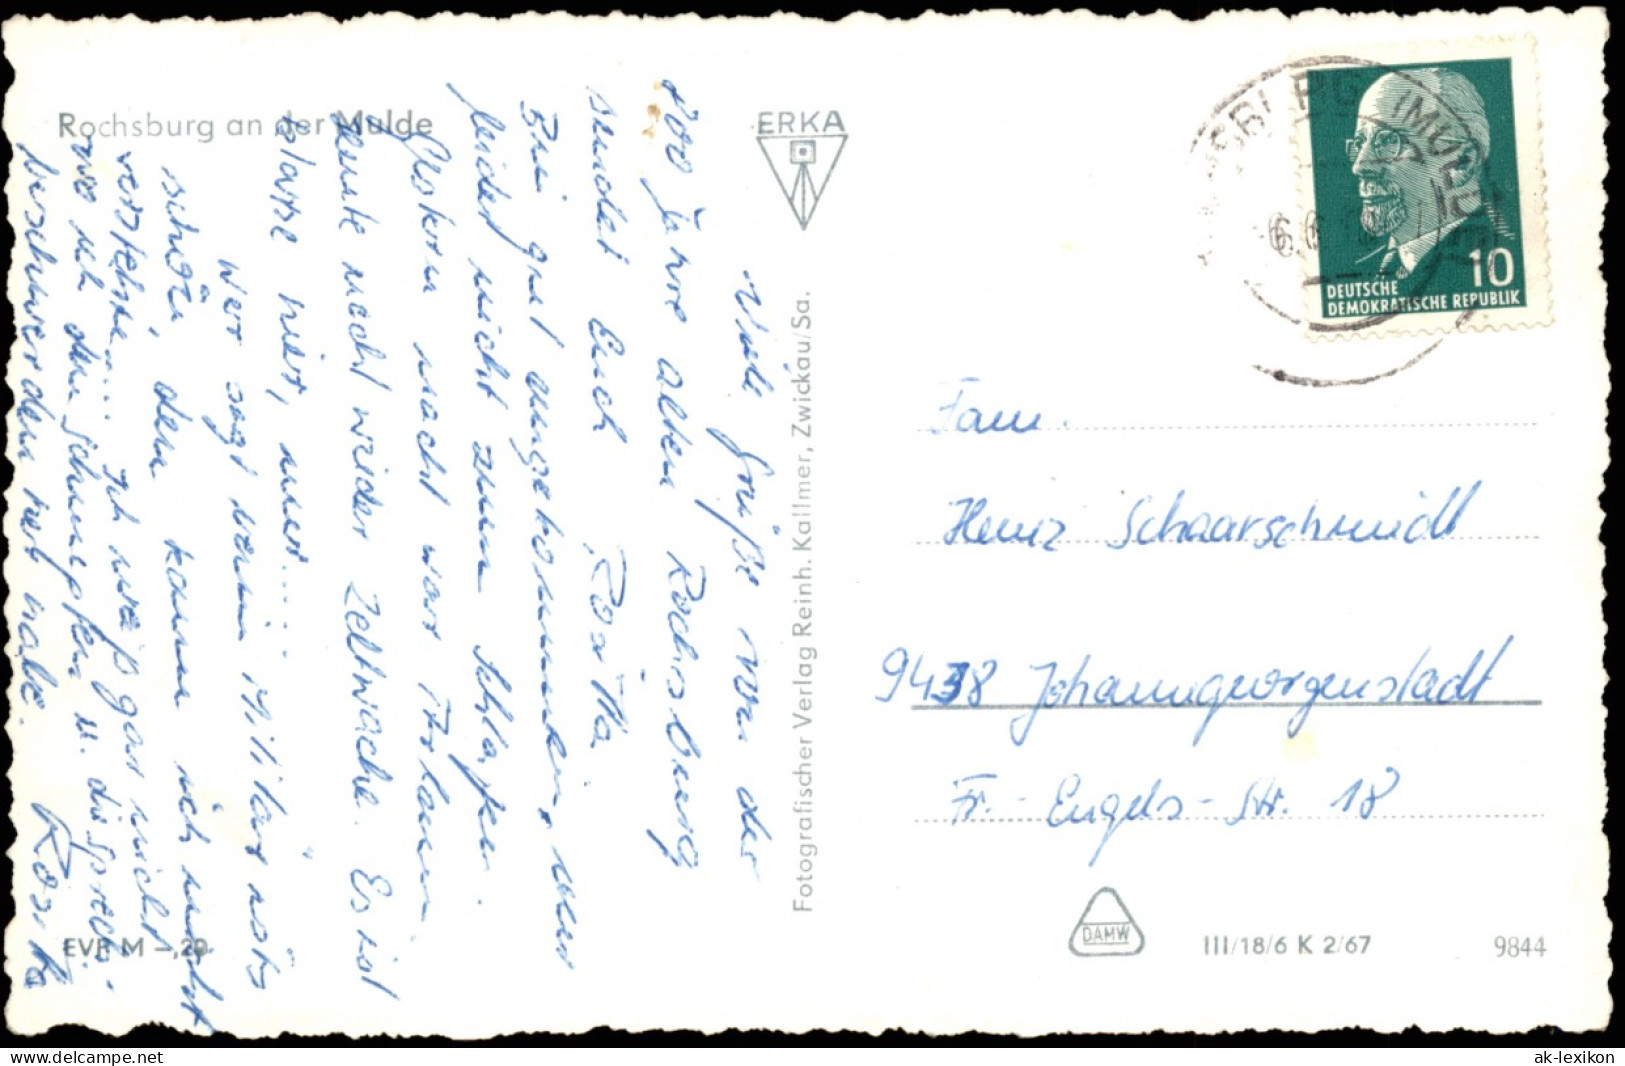 Rochsburg an der Mulde
ERKA
Viele Grüße von der
800 Jahre alten Rochsburg
sendet Euch Rosita
Bin gut angekommen, nur
leider nicht zum Schlafen.
Gestern nacht war
heute nacht wieder Zeltwache. Es ist
klasse hier, nur....
Wer sagt beim Militär ists
schön, den kann ich nicht
verstehn.... Ich weiß gar nicht
wo ich den Schnupfen u. die Sprech-
beschwerden her habe. Rosita
Fotografischer Verlag Reinh. Kallmer, Zwickau/Sa.
EVP M -,20
10
DEUTSCHE
DEMOKRATISCHE REPUBLIK
Fam.
Heinz Schaarschmidt
9438 Johanngeorgenstadt
Fr.-Engels-Str. 18
DAMW
III/18/6 K 2/67
9844
www.ansichtskarten-lexikon.de
ak-lexikon